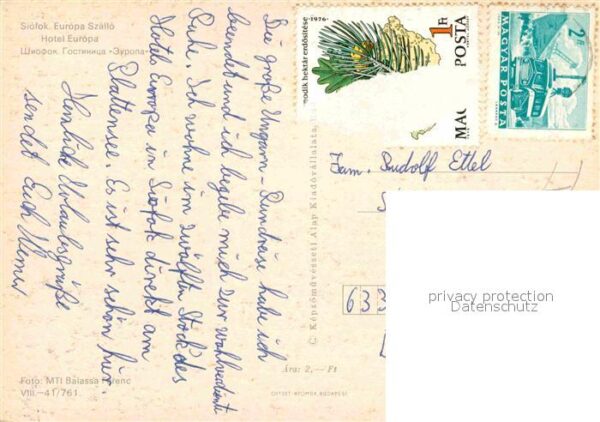 Siófok. Európa Szálló
Hotel Európa
Шиофок. Гостиница «Эуропа»
Die große Ungarn-Rundreise habe ich
beendet und ich begebe mich zur wohlverdienten
Ruhe. Ich wohne im zwölften Stock des
Hotels Europa in Siófok direkt am
Plattensee. Es ist sehr schön hier.
Herzliche Urlaubsgrüße
sendet Euch Werner
Foto: MTI Balassa Ferenc
VIII.—41/761.
C Képzőművészeti Alap Kiadóvállalata,
Ára: 2,— Ft
OFFSET-NYOMDA BUDAPEST
-1976-
hektár erdősítése
1 Ft
POSTA
MAG
2 Ft
MAGYAR POSTA
Fam. Rudolf Ettel
633
privacy protection
Datenschutz